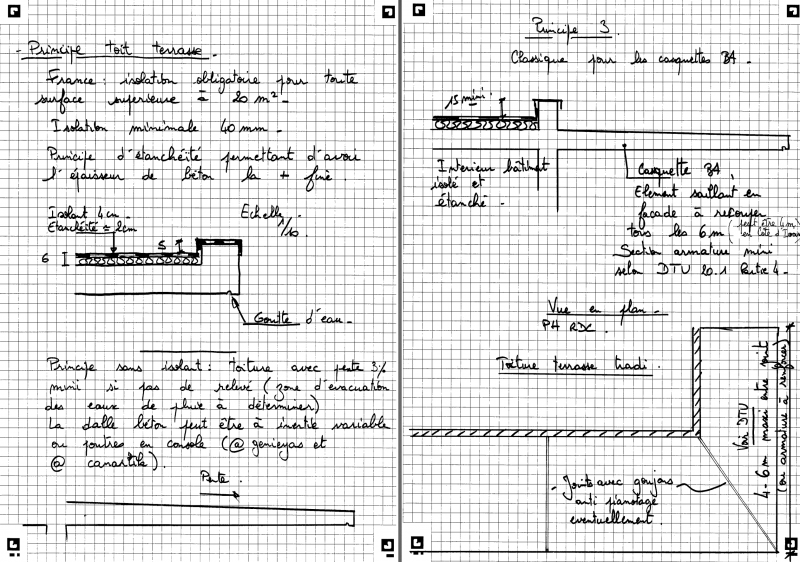 - Principe toit terrasse.
France : isolation obligatoire pour toute
surface supérieure = 20 m² -
Isolation minimale 40 mm -
Principe d'étanchéité permettant d'avoir
l'épaisseur de béton la + fine.
Isolant 4 cm -
Etanchéité = 2cm
Echelle 1/10.
5
6
Goutte d'eau -
Principe sans isolant : toiture avec pente 3%
mini si pas de relevé (zone d'évacuation
des eaux de pluie à déterminer)
La dalle béton peut être à inertie variable
ou poutres en console (@genieyas et
@canastite).
Pente.
Principe 3.
Classique pour les casquettes BA -
15 mini.
Interieur bâtiment
isolé et
étanché -
Casquette BA
Element saillant en
façade à recouper
tous les 6 m (peut être 4m)
en Cote d'Ivoire
Section armature mini
selon DTU 20.1 Partie 4 -
Vue en plan -
PH RDC.
Toiture terrasse tradi.
Voir DTU
4-6 m maxi entre joint
(ou armature à renforcer)
- Joints avec goujons
anti pianotage
eventuellement.